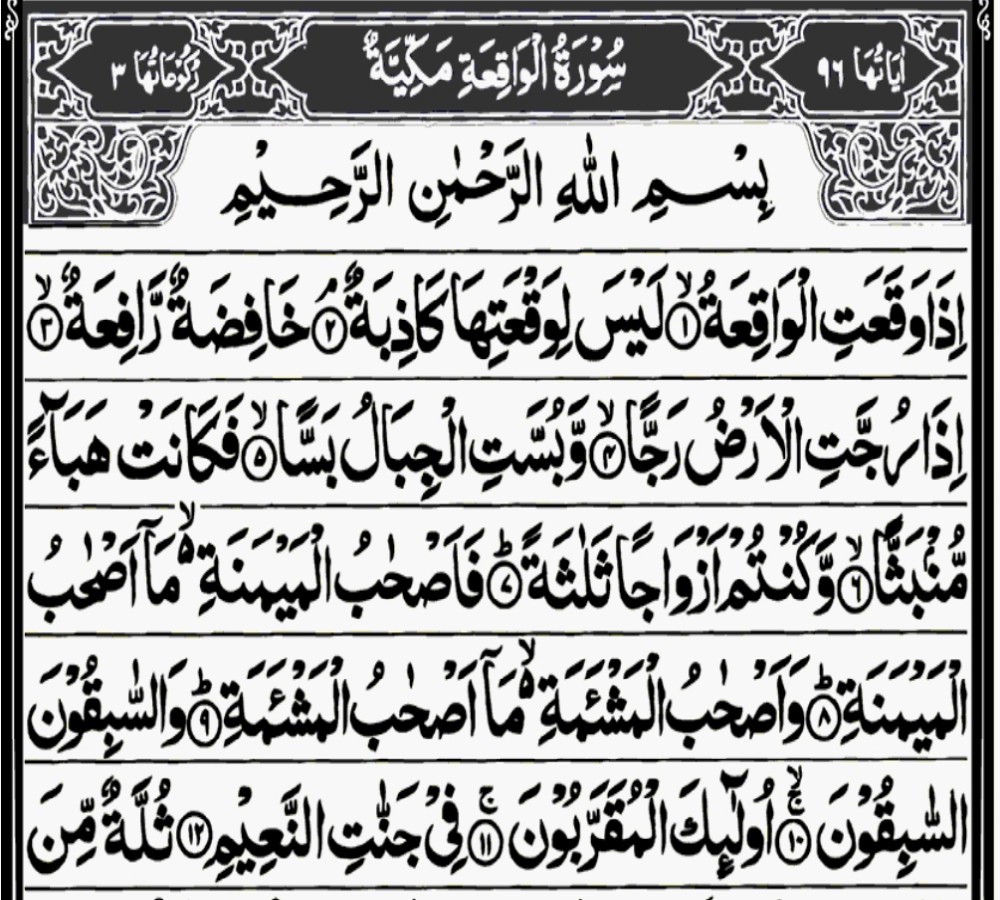 اٰیَاتُهَا ٩٦ سُوْرَةُ الْوَاقِعَةِ مَكِّيَّةٌ رُكُوْعَاتُهَا ٣
بِسْمِ اللّٰهِ الرَّحْمٰنِ الرَّحِيْمِ
اِذَا وَقَعَتِ الْوَاقِعَةُ ۙ﴿۱﴾ لَيْسَ لِوَقْعَتِهَا كَاذِبَةٌ ۘ﴿۲﴾ خَافِضَةٌ رَّافِعَةٌ ۙ﴿۳﴾
اِذَا رُجَّتِ الْاَرْضُ رَجًّا ۙ﴿۴﴾ وَّبُسَّتِ الْجِبَالُ بَسًّا ۙ﴿۵﴾ فَكَانَتْ هَبَآءً
مُّنْۢبَثًّا ۙ﴿۶﴾ وَّكُنْتُمْ اَزْوَاجًا ثَلٰثَةً ؕ﴿۷﴾ فَاَصْحٰبُ الْمَيْمَنَةِ ۙ۬ مَاۤ اَصْحٰبُ
الْمَيْمَنَةِ ؕ﴿۸﴾ وَاَصْحٰبُ الْمَشْئَمَةِ ۙ۬ مَاۤ اَصْحٰبُ الْمَشْئَمَةِ ؕ﴿۹﴾ وَالسّٰبِقُوْنَ
السّٰبِقُوْنَ ۚۙ﴿۱۰﴾ اُولٰٓئِكَ الْمُقَرَّبُوْنَ ۚ﴿۱۱﴾ فِيْ جَنّٰتِ النَّعِيْمِ ﴿۱۲﴾ ثُلَّةٌ مِّنَ